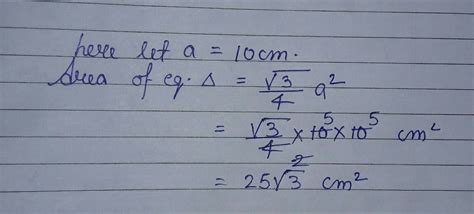 here let a = 10cm.
Area of eq. Δ = √3/4 a²
= √3/4 × 10 5 × 10 5 cm²
2
= 25√3 cm²